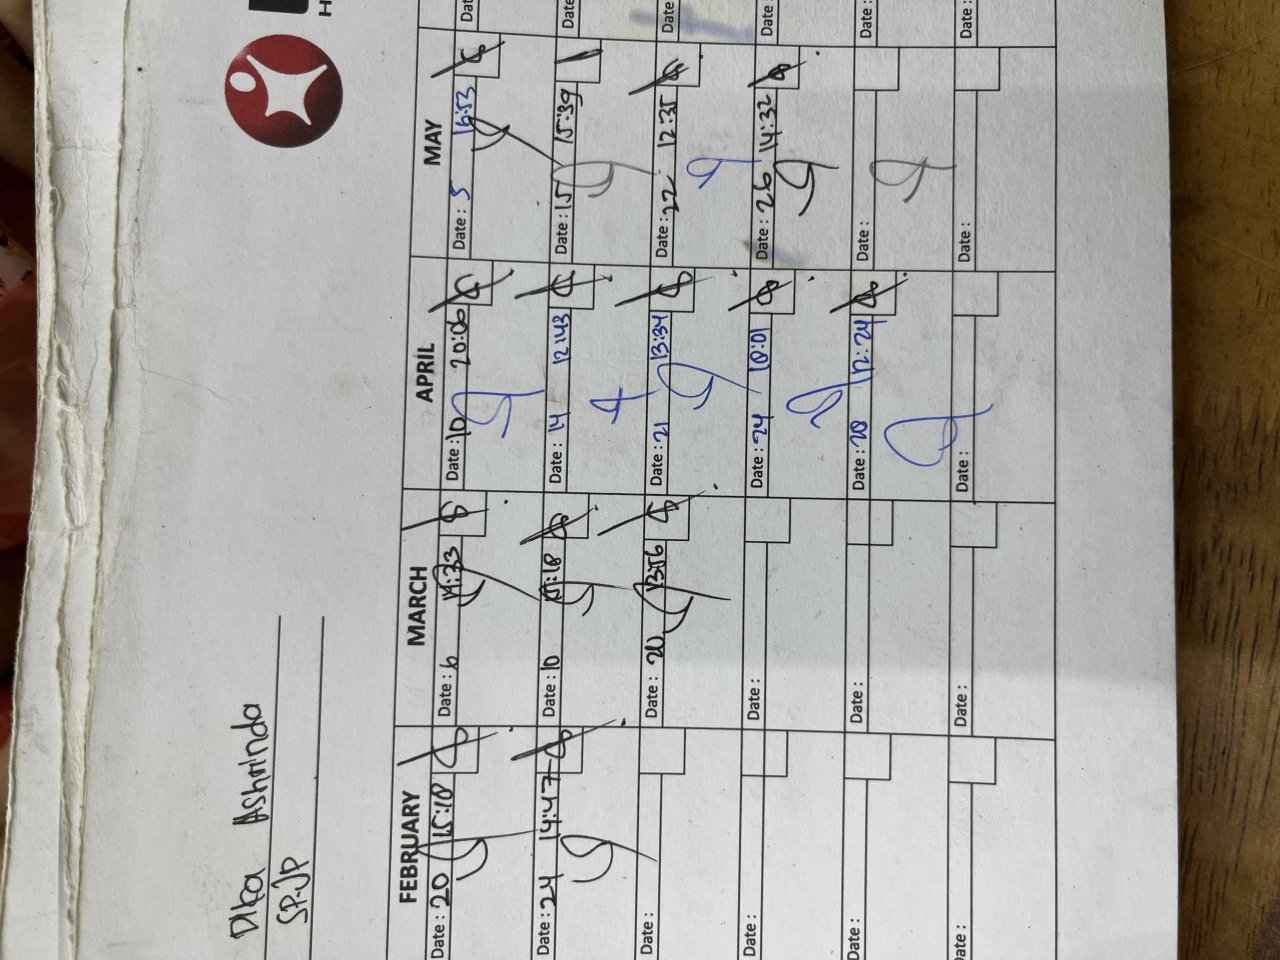 Dika Ashrinda
SP.JP
FEBRUARY MARCH APRIL MAY
Date : 20 15:18 Date : 6 14:33 Date : 10 20:06 Date : 5 16:53
Date : 24 14:47 Date : 10 15:18 Date : 14 12:43 Date : 15 15:39
Date : Date : 20 13:56 Date : 21 13:34 Date : 22 12:35
Date : Date : Date : 24 18:01 Date : 26 14:32
Date : Date : Date : 28 12:24 Date :
Date : Date : Date : Date :